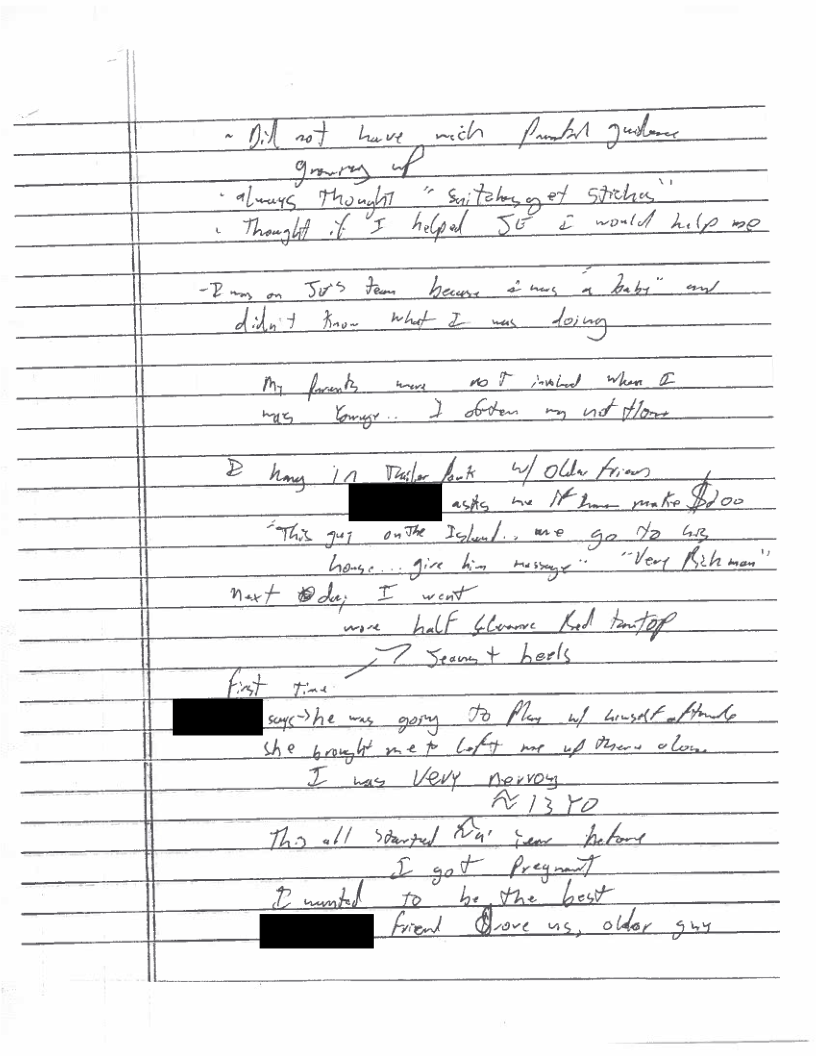 ~ Did not have much parental guidance
growing up
- always Thought "snitches get stiches"
- Thought if I helped JE I would help me
- I was on JE's team because i was "a baby" and
didn't know what I was doing
My parents were noT involved when I
was Younger.. I often was not Home
I hang in Trailer Park w/ older friends
asks me If wanna make $200
"This guy on The Island.. we go to his
house... give him massage" "Very Rich man"
next day I went
wore half sleeve Red tanktop
Jeans + heels
first Time:
says -> he was going to Play w/ himself
she brought me to left me up there alone
I was Very nervous
≈ 13 YO
This all started ≈ a year before
I got Pregnant
I wanted to be the best
friend Drove us, older guy